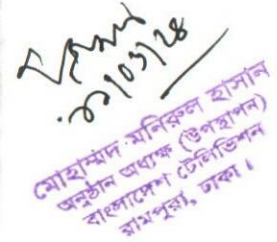 ২১/০১/২৪
মোহাম্মদ মনিরুল হাসান
অনুষ্ঠান অধ্যক্ষ (উপস্থাপন)
বাংলাদেশ টেলিভিশন
রামপুরা, ঢাকা।